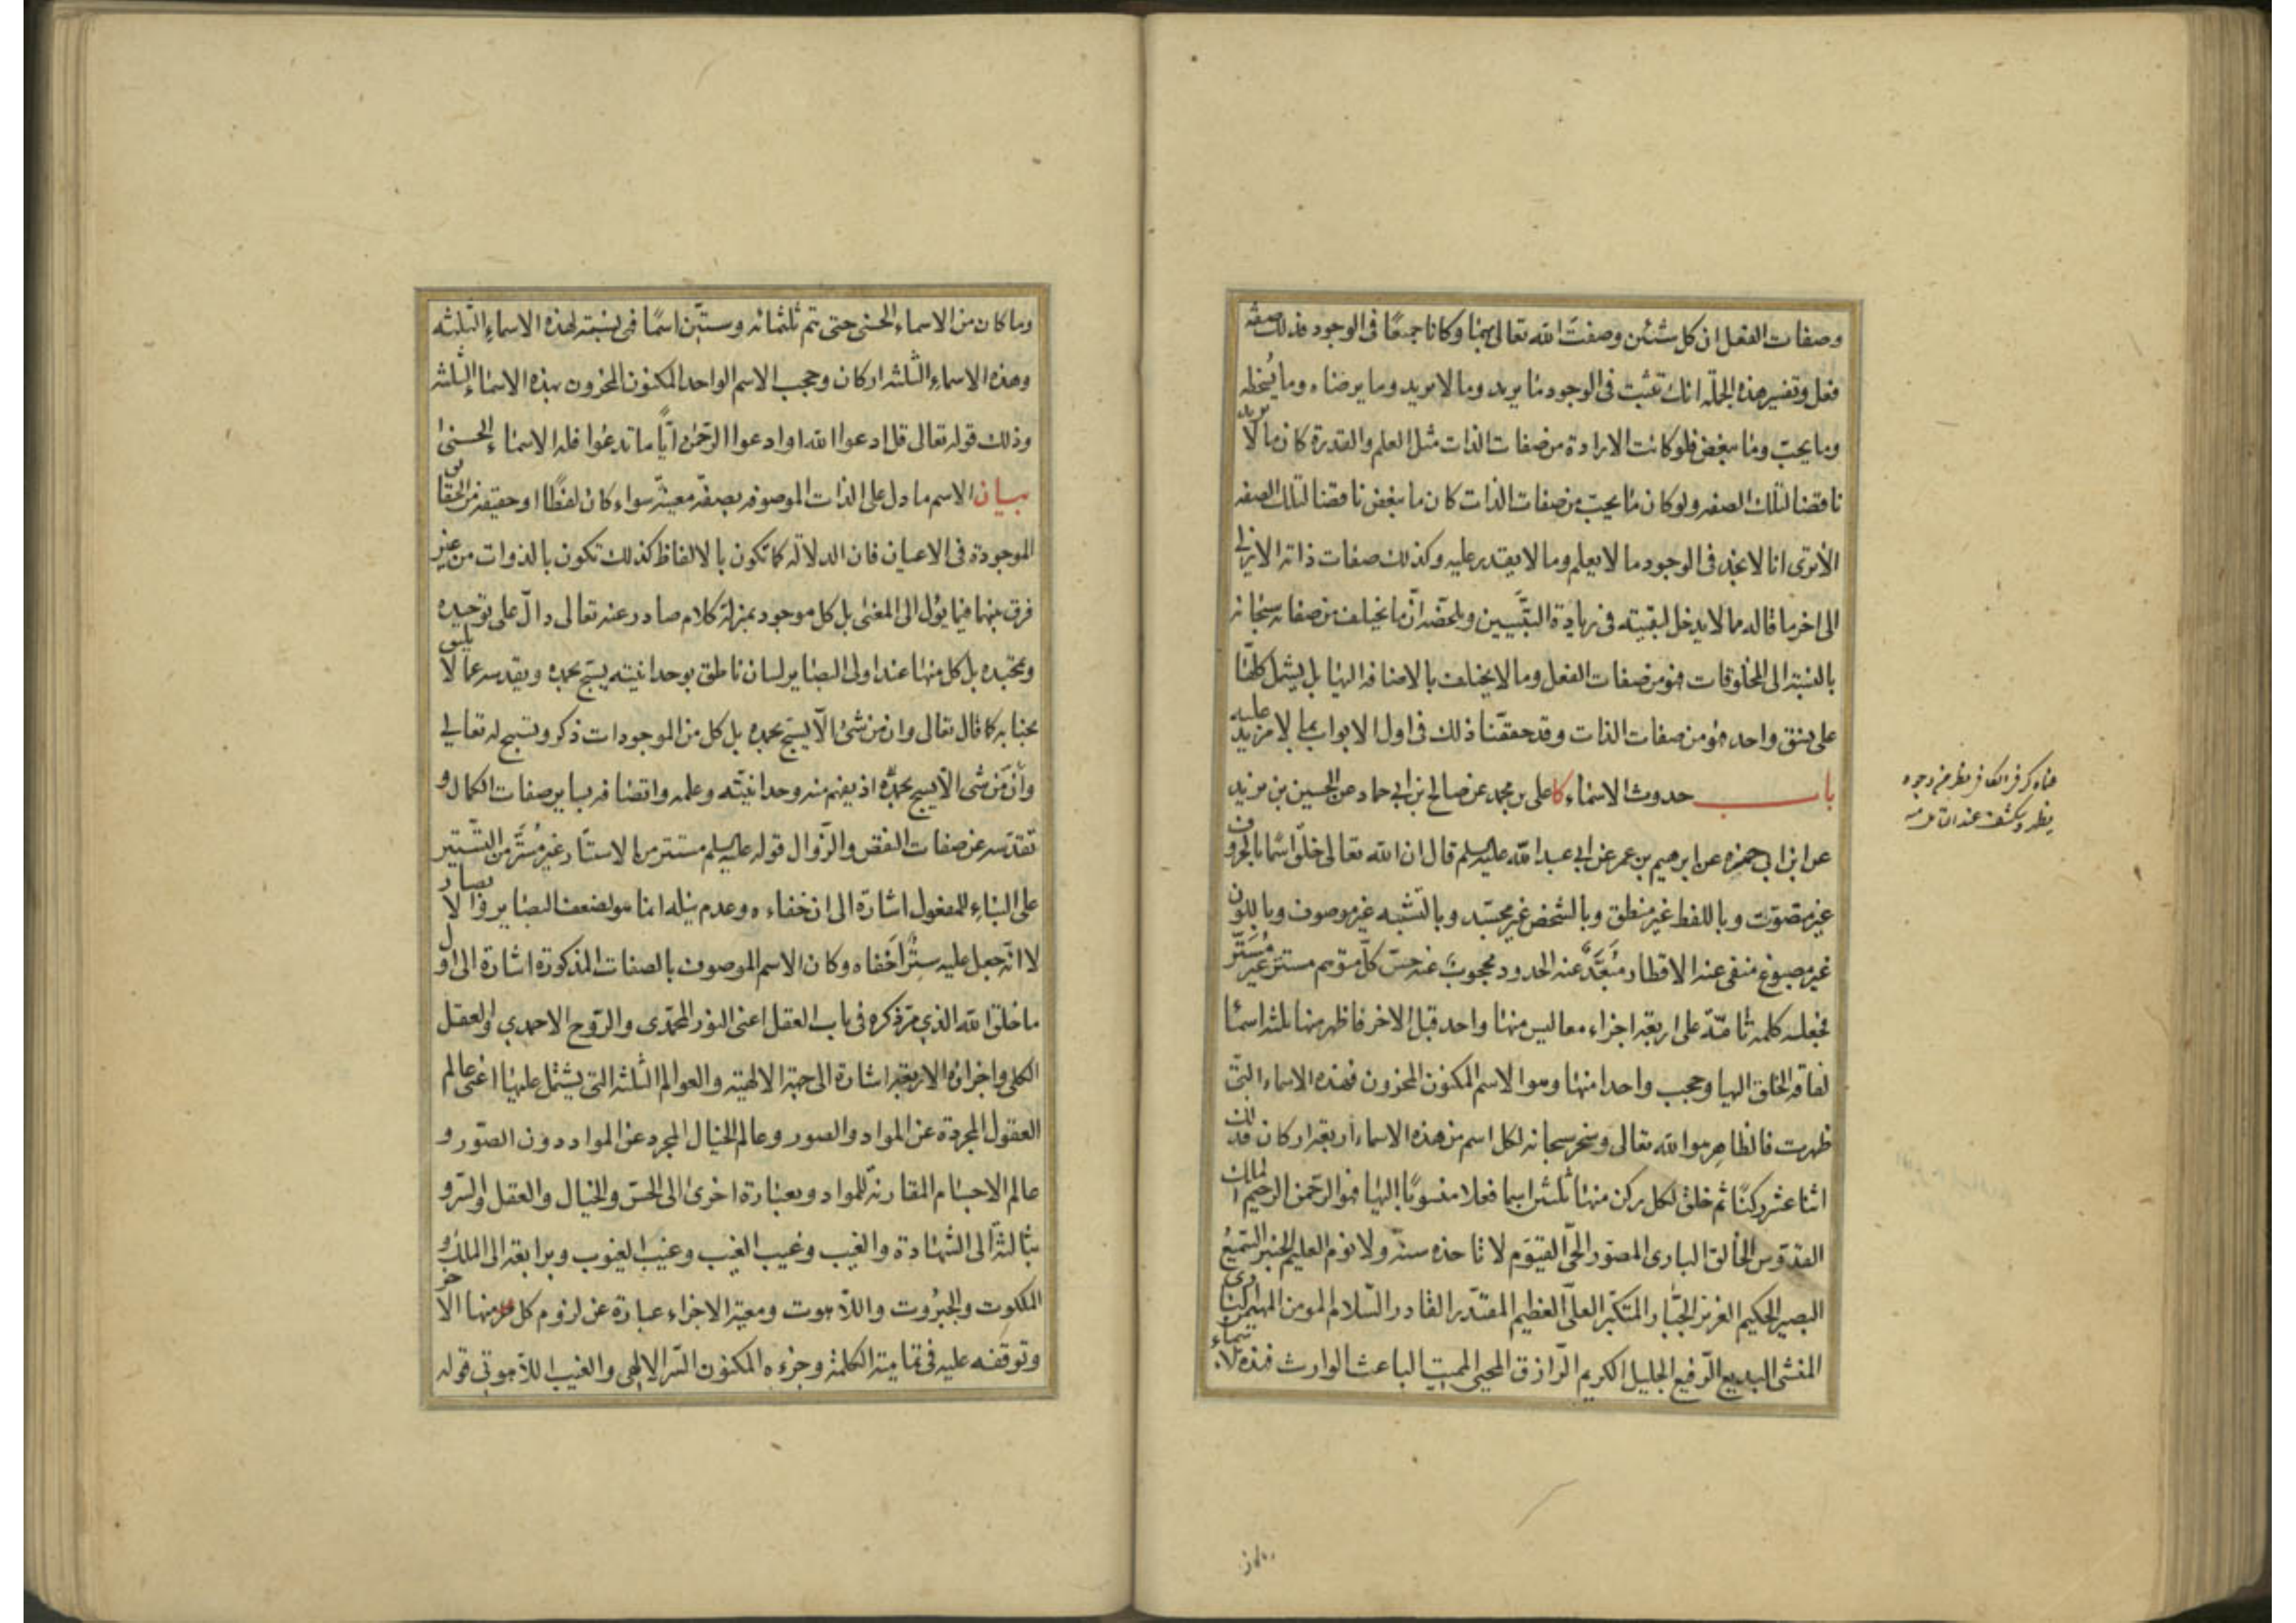 وصفات الفعل ان كل شيئين وصفت الله تعالى بهما وكانا جميعًا فى الوجود فذلك صفة
فعل وتفسير هذه الجملة انك تثبت فى الوجود ما يريد وما لا يريد وما يرضاه وما يسخطه
وما يحبّ وما يبغض فلو كانت الارادة من صفات الذات مثل العلم والقدرة كان ما لا يريد
ناقضا لتلك الصفه ولو كان ما يحبّ من صفات الذات كان ما يبغض ناقضا لتلك الصفه
الا ترى انا لا نجد فى الوجود ما لا يعلم وما لا يقدر عليه وكذلك صفات ذاته الازلى
الى اخر ما قاله مما لا يدخل لبقيته فى زيادة التبيين وملخصه ان ما يختلف من صفاته سبحانه
بالنسبة الى المخلوقات فهو من صفات الفعل وما لا يختلف بالاضافه اليها بل يشمل كلها
على نسق واحد فهو من صفات الذات وقد حققنا ذلك فى اول الابواب بما لا مزيد عليه
باب حدوث الاسماء كا على بن محمد عن صالح بن ابى حماد عن الحسين بن يزيد
عن ابن ابى حمزه عن ابرهيم بن عمر عن ابى عبد الله عليه السلم قال ان الله تعالى خلق اسمًا بالحروف
غير متصوّت وباللفظ غير منطق وبالشخص غير مجسّد وبالتشبيه غير موصوف وباللون
غير مصبوغ منفى عنه الاقطار مُبَعَّدٌ عنه الحدود محجوبٌ عنه حسّ كلّ متوهم مستتر غير مُسَتَّر
فجعله كلمه تامّة على اربعة اجزاء معا ليس منها واحد قبل الاخر فاظهر منها ثلثه اسما
لفاقة الخلق اليها وحجب واحدا منها وهو الاسم المكنون المخزون فهذه الاسماء التى
ظهرت فالظاهر هو الله تعالى وسخر سبحانه لكل اسم من هذه الاسماء اربعة اركان فذلك
اثنا عشر ركنًا ثم خلق لكل ركن منها ثلثين اسما فعلا منسوبًا اليها فهو الرحمن الرحيم الملك
القدّوس الخالق البارى المصوّر الحىّ القيّوم لا تاخذه سنة ولا نوم العليم الخبير السّميعُ
البصير الحكيم العزيز الجبّار المتكبّر العلىّ العظيم المقتدر القادر السّلام المومن المهيمن البارى
المنشئ البديع الرّفيع الجليل الكريم الرّازق المحيى المميت الباعث الوارث فهذه الاسماء
وما كان من الاسماء الحسنى حتى تتم ثلثمائه وستّين اسمًا فهى نسبة لهذه الاسماء الثلثه
وهذه الاسماء الثلثه اركان وحجب الاسم الواحد المكنون المخزون بهذه الاسماء الثلثه
وذلك قوله تعالى قل ادعوا الله او ادعوا الرّحمن ايًّا ما تدعوا فله الاسماء الحسنى
بيان الاسم ما دل على الذات الموصوفه بصفة معينة سواء كان لفظًا او حقيقه من الحقايق
الموجودة فى الاعيان فان الدلالة كما تكون بالالفاظ كذلك تكون بالذوات من غير
فرق بينهما فيما يؤل الى المعنى بل كل موجود بمنزلة كلام صادر عنه تعالى دالّ على توحيده
وتمجيده بل كل منها عند اولى البصاير لسان ناطق بوحدانيته يسبّح بحمده ويقدسه عما لا يليق
بجنابه كما قال تعالى وان من شئ الّا يسبّح بحمده بل كل من الموجودات ذكر وتسبيح له تعالى
وان من شى الّا يسبح بحمده اذ يفهم منه وحدانيته وعلمه واتصافه بساير صفات الكمال و
تقدّسه عن صفات النقص والزّوال قوله عليه السلم مستتر من الاستتار غير مُستَّر من التّستير
على البناء للمفعول اشارة الى ان خفاءه وعدم نيله انما هو لضعف البصاير والابصار
لا انه جعل عليه سترًا اخفاه وكان الاسم الموصوف بالصفات المذكورة اشارة الى اول
ما خلق الله الذى مرّ ذكره فى باب العقل اعنى النور المحمّدى والرّوح الاحمدى والعقل
الكلى واجزاؤه الاربعة اشارة الى جهة الالهية والعوالم الثلثه التى يشتمل عليها اعنى عالم
العقول المجردة عن المواد والصور وعالم الخيال المجرد عن المواد دون الصّور و
عالم الاجسام المقارنة للمواد وبعبارة اخرى الى الحسّ والخيال والعقل والسّر و
بثالثة الى الشهادة والغيب وغيب الغيب وغيب الغيوب وبرابعة الى الملك و
الملكوت والجبروت واللاهوت ومعية الاجزاء عبارة عن لزوم كل منها الاخر
وتوقفه عليه فى تمامية الكلمة وجزءه المكنون السّر الالهى والغيب اللاهوتى قوله